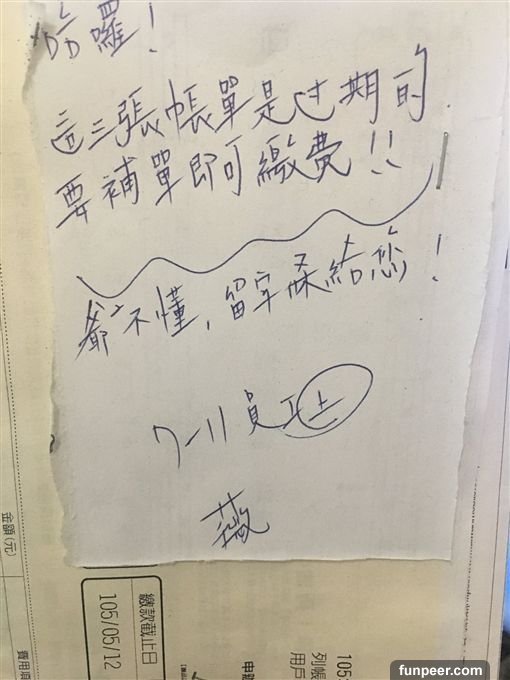 哈囉!
這三張帳單是过期的.
要補單即可繳費!!
爺不懂,留字條給您!
7-11 員工
薇
金額(元)
繳款截止日
105/05/12
費用項
105
列帳
用戶
申
funpeer.com